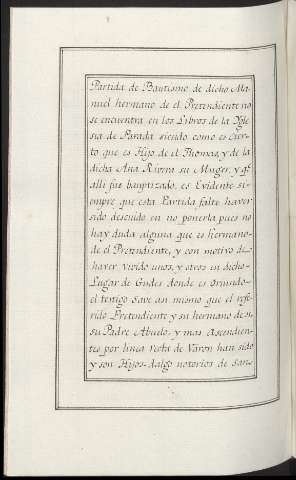 Partida de Bautismo de dicho Ma-
nuel hermano de el Pretendiente no
se encuentra en los Lybros de la Ygle-
sia de Parada siendo como es Cier-
to que es Hijo de el Thomas, y de la
dicha Ana Rivera su Muger, y qᵉ
alli fue bauptizado, es Evidente si-
empre que esta Partida falte haver
sido descuido en no ponerla pues no
hay duda alguna que es hermano-
de el Pretendiente, y con motivo de-
haver vivido unos, y otros en dicho-
Lugar de Gudes donde es Oriundo-
el testigo save an mismo que el refe-
rido Pretendiente y su hermano de n.
su Padre Abuelo, y mas Ascendien-
tes por linea recta de Varon han sido
y son Hijos-dalgo notorios de San-